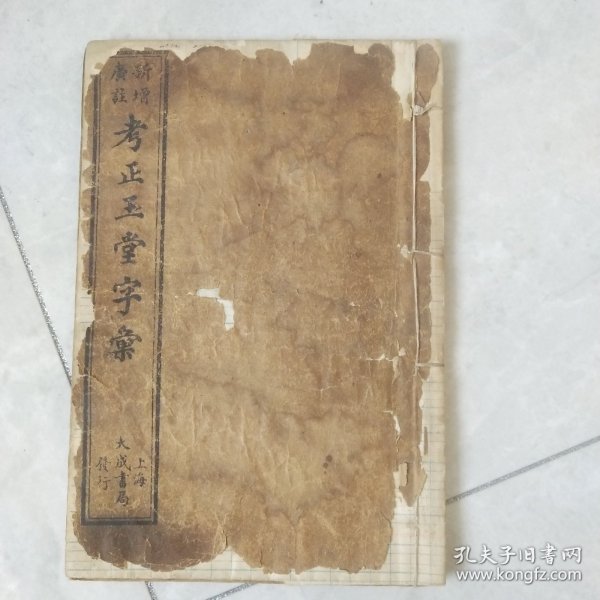 新增
廣註
考正玉堂字彙
上海
大成書局
發行
孔夫子旧书网
www.kongfz.com